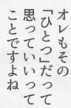 オレもその
「ひとつ」だって
思っていいって
ことですよね